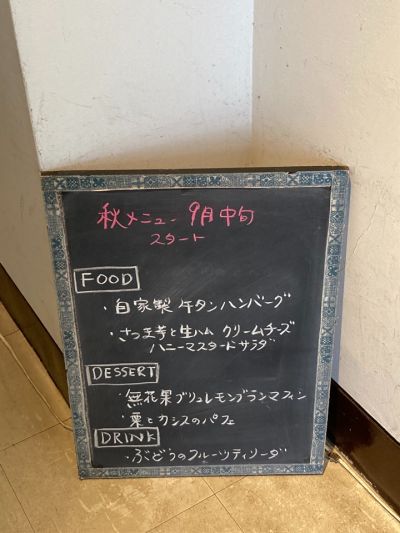 秋メニュー 9月中旬
スタート
FOOD
・自家製 牛タンハンバーグ
・さつま芋と生ハム クリームチーズ
ハニーマスタードサラダ
DESSERT
・無花果ブリュレモンブランマフィン
・栗とカシスのパフェ
DRINK
・ぶどうのフルーツティソーダ